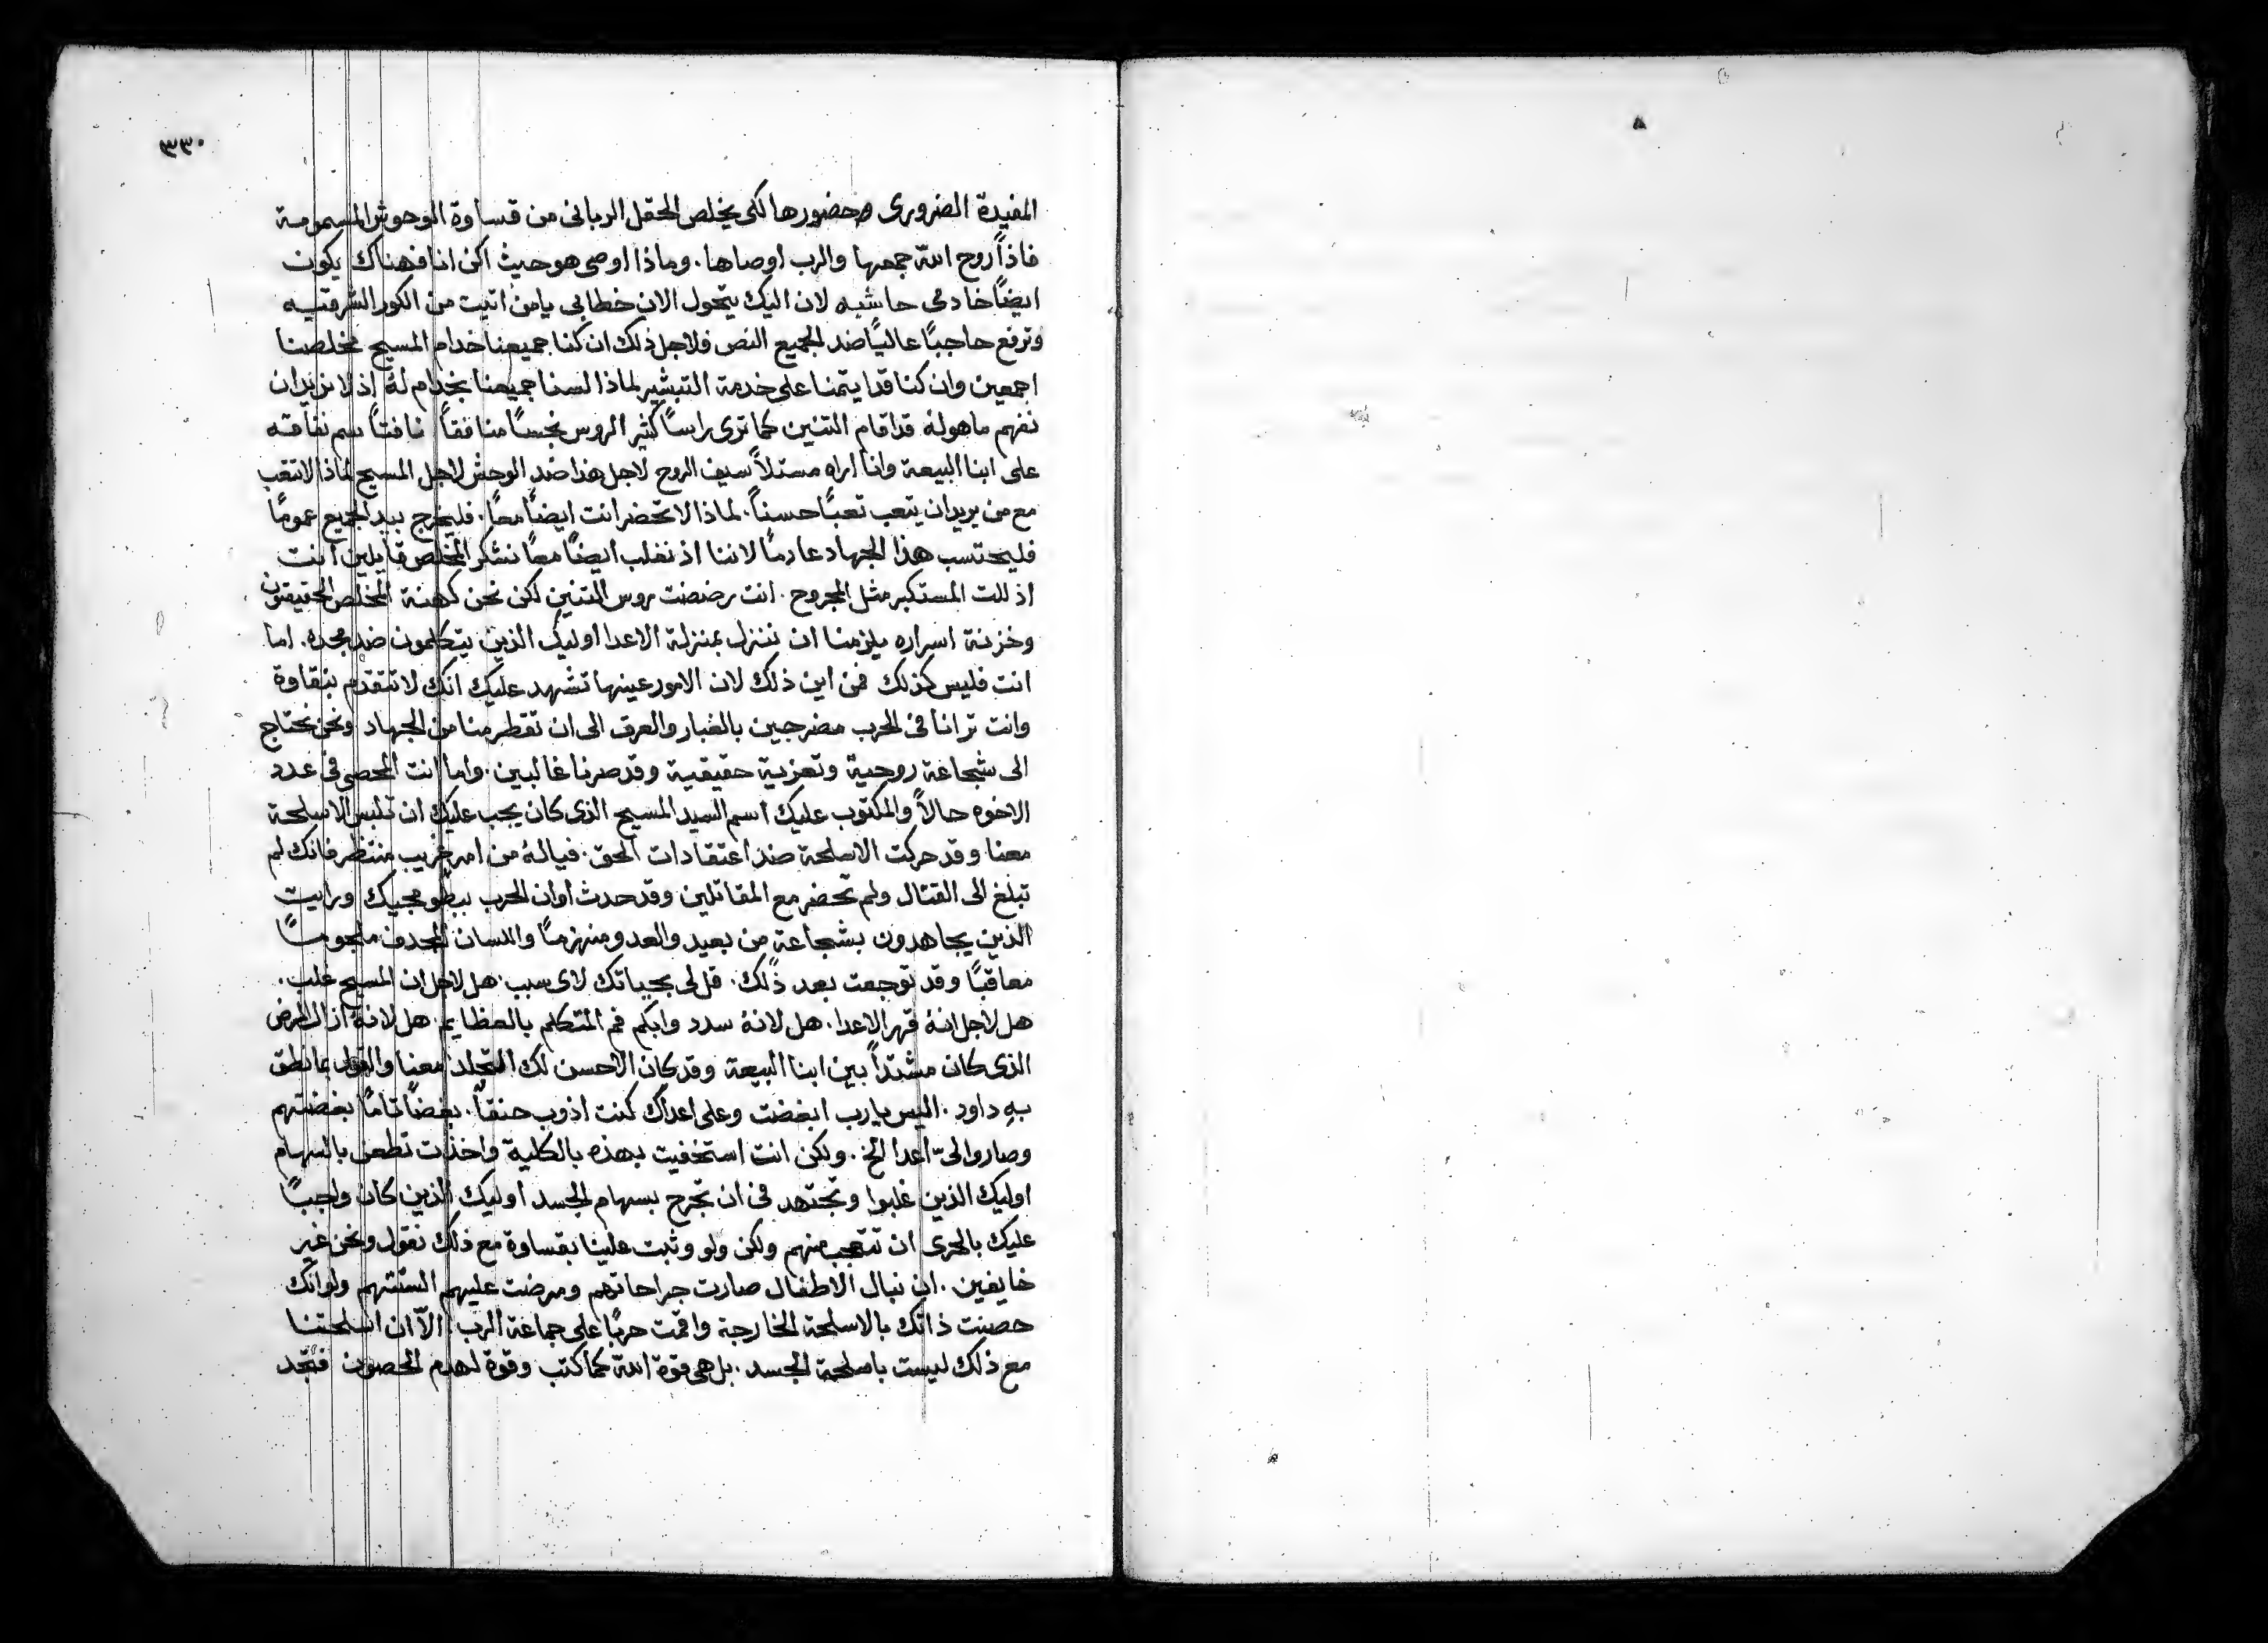 ٣٣٠
المفيدة الضرورى حضورها لكى يخلص الحقل الربانى من قساوة الوحوش المسمومة
فاذاً روح الله جمعها والرب اوصاها. وماذا اوصى هو حيث اكن انا فهناك يكون
ايضاً خادمى حاشيه لان اليك يتحول الان خطابى يامن اتيت من الكور الشرقيه
وترفع حاجباً عالياً ضد الجميع النص فلاجل ذلك ان كنا جميعنا خدام المسيح مخلصنا
اجمعين وان كنا قد ايتمنا على خدمة التبشير لماذا لسنا جميعنا بخدام له اذ لا نريد ان
نفهم ما هو له قد اقام التنين كما ترى راساً كثير الروس نجساً منافقاً نافثاً سم نفاقه
على ابنا البيعة وانا اراه مستلاً سيف الروح لاجل هذا ضد الوحش لاجل المسيح لماذا لا تتعب
مع من يريد ان يتعب تعباً حسناً. لماذا لا تحضر انت ايضاً معاً. فليخرج بيد الجميع عموماً
فليحتسب هذا الجهاد عادماً لاننا اذ نغلب ايضاً معاً نشكر المخلص قايلين انت
اذللت المستكبر مثل المجروح. انت رضضت روس التنين لكن نحن كهنة المخلص الحقيقيون
وخزنة اسراره يلزمنا ان ننزل بمنزلة الاعدا اوليك الذين يتكلمون ضد مجده. اما
انت فليس كذلك فمن اين ذلك لان الامور عينها تشهد عليك انك لا تتقدم بنقاوة
وانت ترانا فى الحرب مضرجين بالغبار والعرق الى ان تقطر منا من الجهاد ونحن نحتاج
الى شجاعة روحية وتعزية حقيقية وقد صرنا غالبين. واما انت المحصى فى عدد
الاخوه حالاً والمكتوب عليك اسم السيد المسيح الذى كان يجب عليك ان تلبس الاسلحة
معنا وقد حركت الاسلحة ضد اعتقادات الحق. فياله من امر غريب منتظر فانك لم
تبلغ الى القتال ولم تحضر مع المقاتلين وقد حدث اوان الحرب ببطو مجيك ورايت
الذين يجاهدون بشجاعة من بعيد والعدو منهزماً واللسان المجدف ملجوماً
معاقباً وقد توجعت بعد ذلك. قل لى بحياتك لاى سبب. هل لاجل ان المسيح غلب.
هل لاجل انه قهر الاعدا. هل لانه سدد وابكم فم المتكلم بالعظايم. هل لانه ازال المرض
الذى كان مشتداً بين ابنا البيعة وقد كان الاحسن لك التجلد معنا والقول بما نطق
به داود. اليس يا رب ابغضت وعلى اعداك كنت اذوب حنقاً. بغضاً تاماً بغضتهم
وصاروا لىّ اعدا الخ. ولكن انت استخفيت بهذه بالكلية واخذت تطعن بالسهام
اوليك الذين غلبوا وتجتهد فى ان تجرح بسهام الجسد اوليك الذين كان واجباً
عليك بالحرى ان تتعجب منهم ولكن ولو وثبت علينا بقساوة مع ذلك نقول ونحن غير
خايفين. ان نبال الاطفال صارت جراحاتهم ومرضت عليهم السنتهم ولو انك
حصنت ذاتك بالاسلحة الخارجة واقمت حرباً على جماعة الرب. الاّ ان اسلحتنا
مع ذلك ليست باسلحة الجسد. بل هى قوة الله كما كتب وقوة لهدم الحصون فنجد